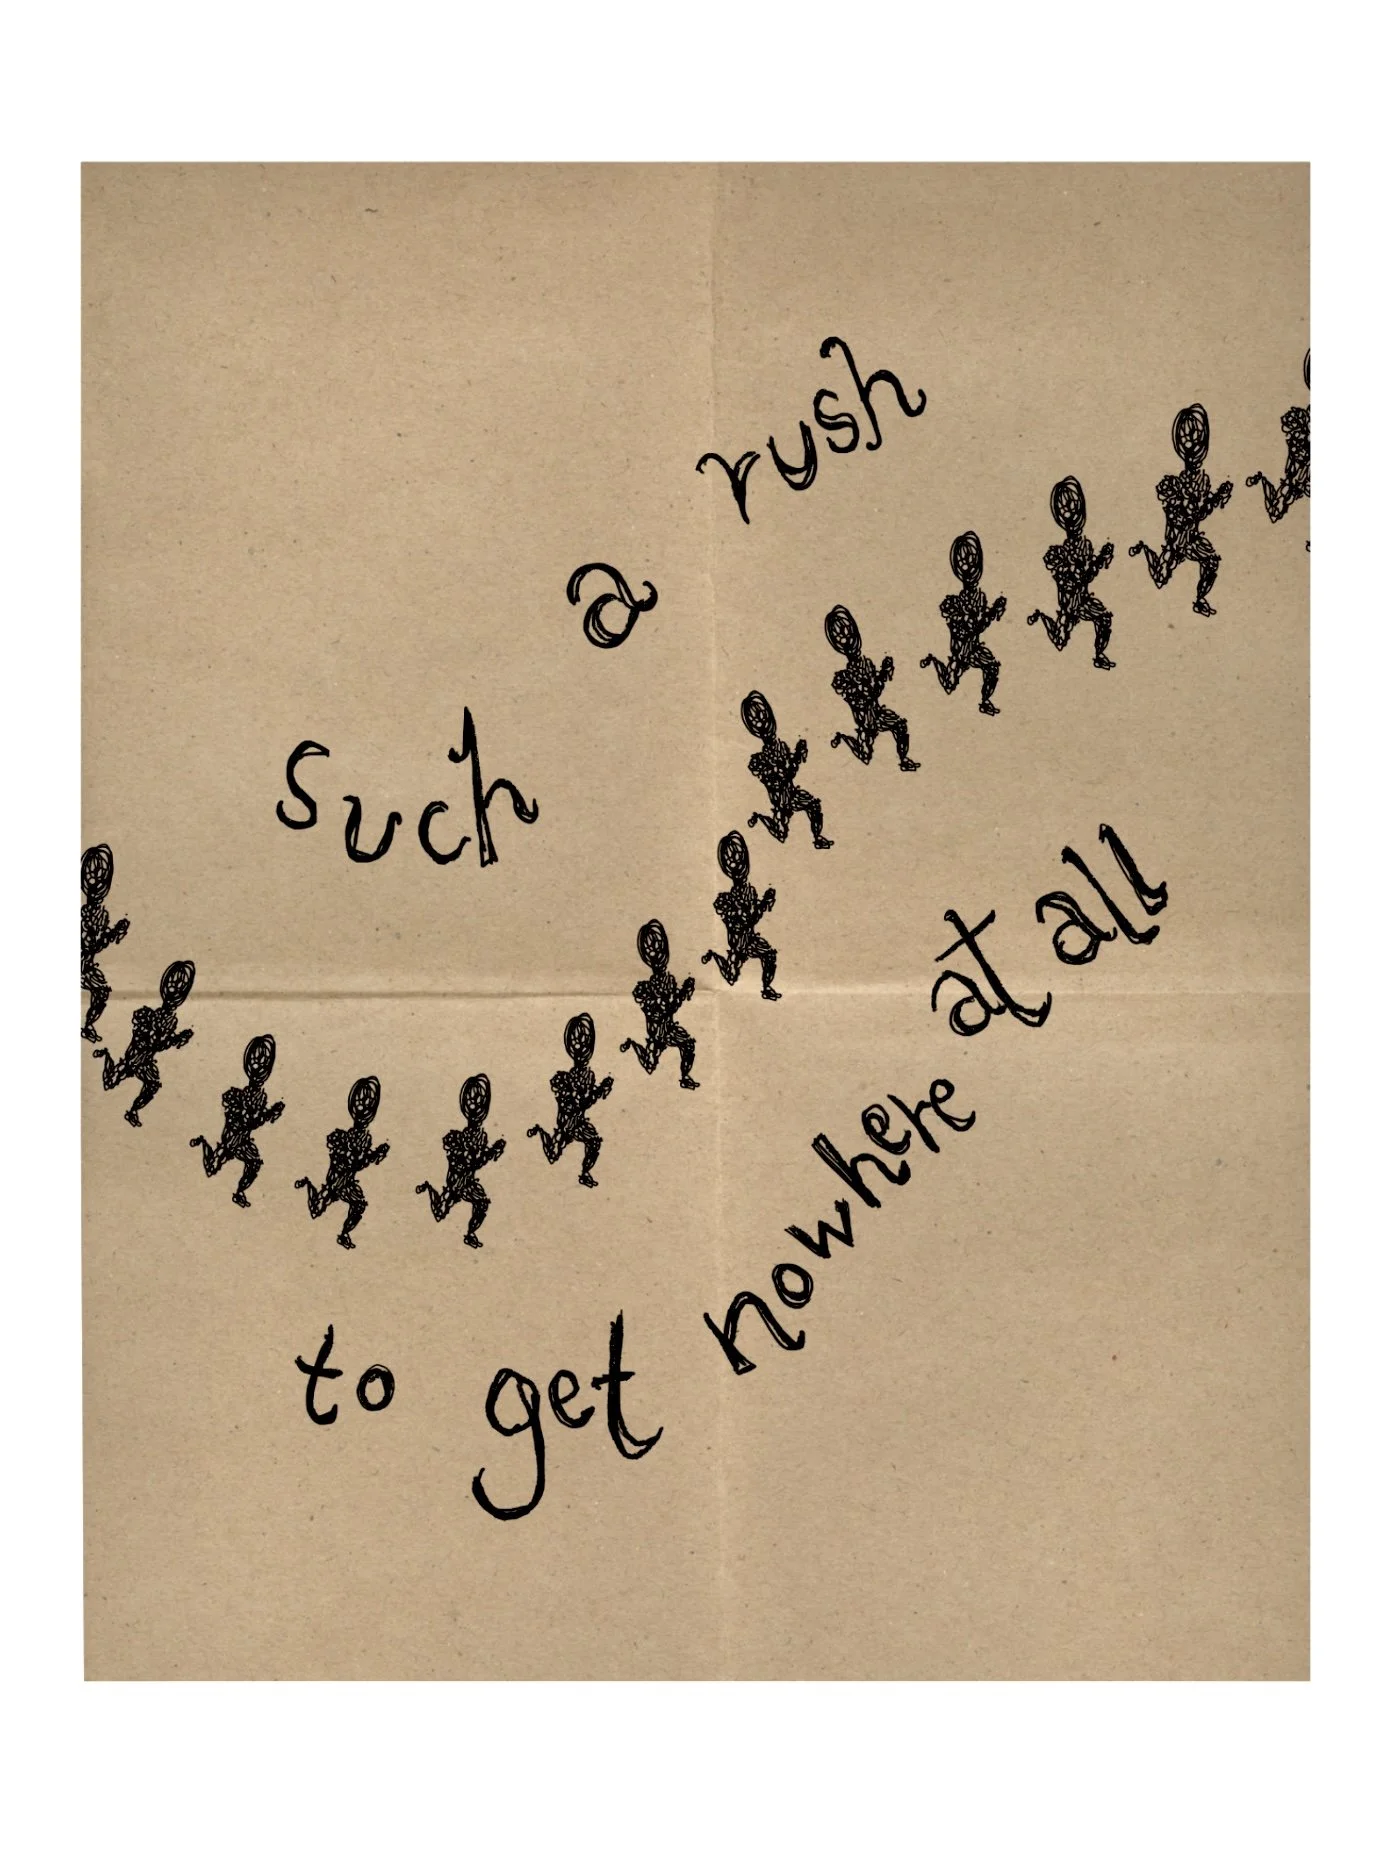 such a rush
to get nowhere at all